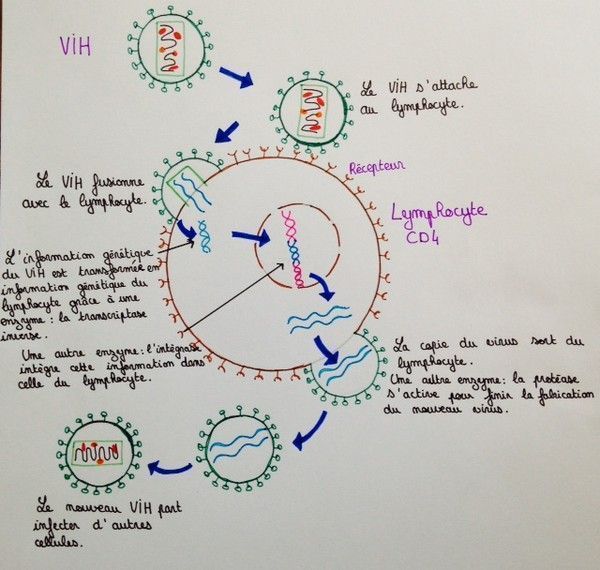 VIH
Le VIH s'attache
au lymphocyte.
Récepteur
Le VIH fusionne
avec le lymphocyte.
Lymphocyte
CD4
L'information génétique
du VIH est transformée en
information génétique du
lymphocyte grâce à une
enzyme : la transcriptase
inverse.
Une autre enzyme : l'intégrase
intègre cette information dans
celle du lymphocyte.
La copie du virus sort du
lymphocyte.
Une autre enzyme : la protéase
s'active pour finir la fabrication
du nouveau virus.
Le nouveau VIH part
infecter d'autres
cellules.